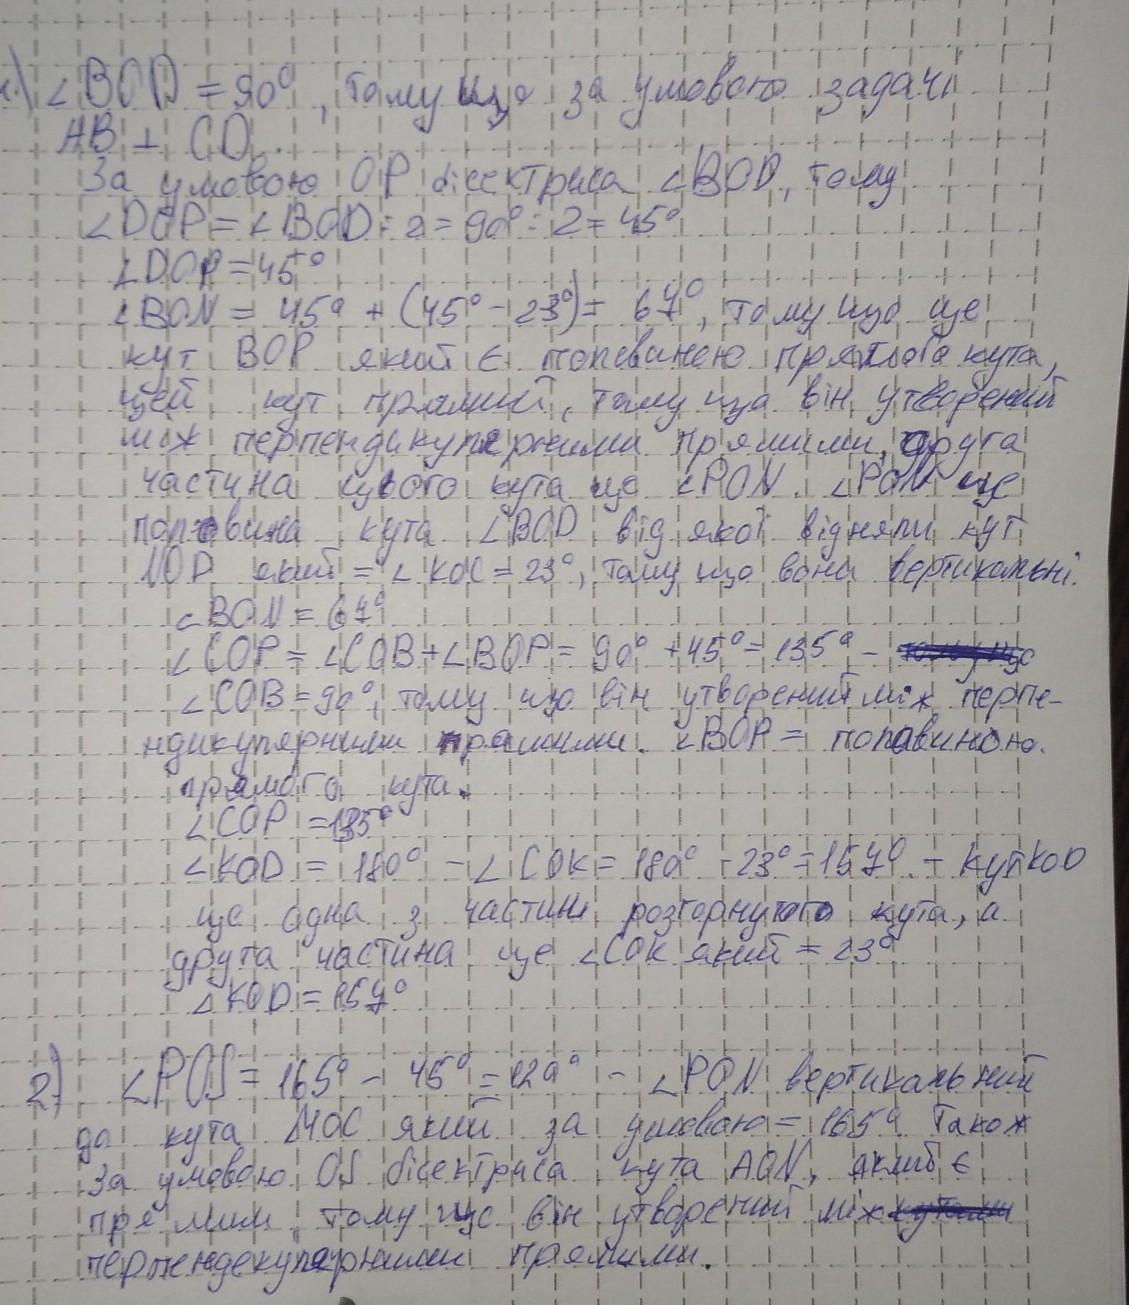 1.) ∠BOD = 90°, тому що за умовою задачі
AB ⊥ CD.
За умовою OP бісектриса ∠BOD, тому
∠DOP = ∠BOD : 2 = 90° : 2 = 45°
∠DOP = 45°
∠BON = 45° + (45° - 23°) = 67°, тому що це
кут BOP який є половиною прямого кута,
цей кут прямий, тому що він утворений
між перпендикулярними прямими, друга
частина цього кута це ∠PON. ∠PON це
половина кута ∠BOD від якої відняли кут
NOD який = ∠KOC = 23°, тому що вони вертикальні.
∠BON = 67°
∠COP = ∠COB + ∠BOP = 90° + 45° = 135° -
∠COB = 90°, тому що він утворений між перпе-
ндикулярними прямими. ∠BOP = половиною
прямого кута.
∠COP = 135°
∠KOD = 180° - ∠COK = 180° - 23° = 157° - кут KOD
це одна з частин розгорнутого кута, а
друга частина це ∠COK який = 23°
∠KOD = 157°
2) ∠POS = 165° - 45° = 120° - ∠PON вертикальний
до кута MOC який за умовою = 165°. Також
за умовою OS бісектриса кута AON, який є
прямим, тому що він утворений між
перпендекулярними прямими.